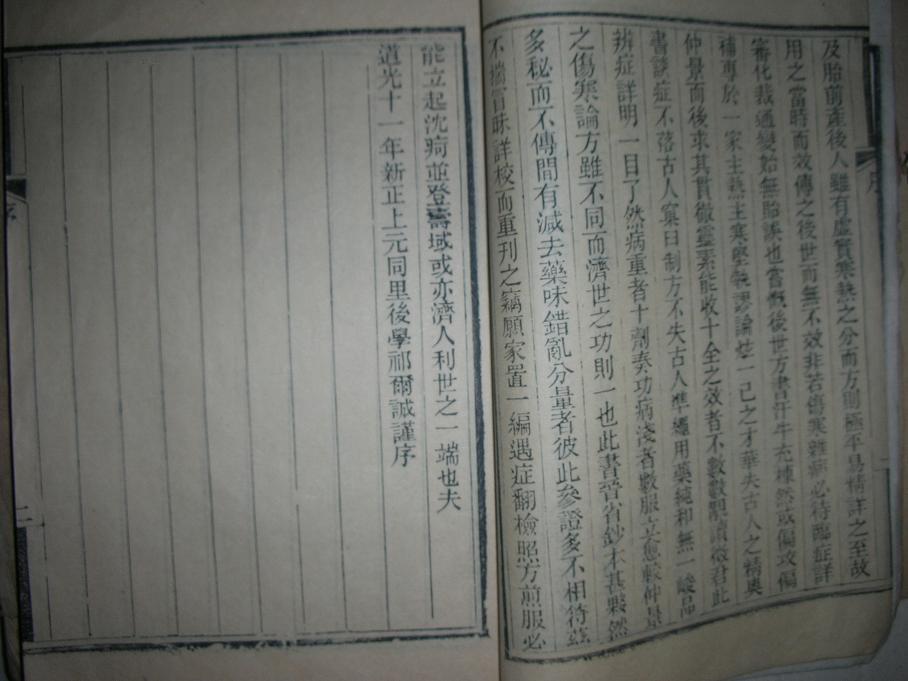 及胎前產後人雖有虛實寒熱之分而方則極平易精詳之至故
用之當時而效傳之後世而無不效非若傷寒雜病必待臨症詳
審化裁通變始無貽誤也嘗慨後世方書汗牛充棟然或偏攻偏
補專於一家主熱主寒堅執謬論炫一己之才華失古人之精奧
仲景而後求其貫徹靈素能收十全之效者不數數覯讀徵君此
書談症不落古人窠臼制方不失古人準繩用藥純和無一峻品
辨症詳明一目了然病重者十劑奏功病淺者數服立愈較仲景
之傷寒論方雖不同而濟世之功則一也此書晉省鈔本甚夥然
多秘而不傳間有減去藥味錯亂分量者彼此參證多不相符茲
不揣冒昧詳校而重刊之竊願家置一編遇症翻檢照方煎服必
序
能立起沈疴並登壽域或亦濟人利世之一端也夫
道光十一年新正上元同里後學祁爾誠謹序
序
二